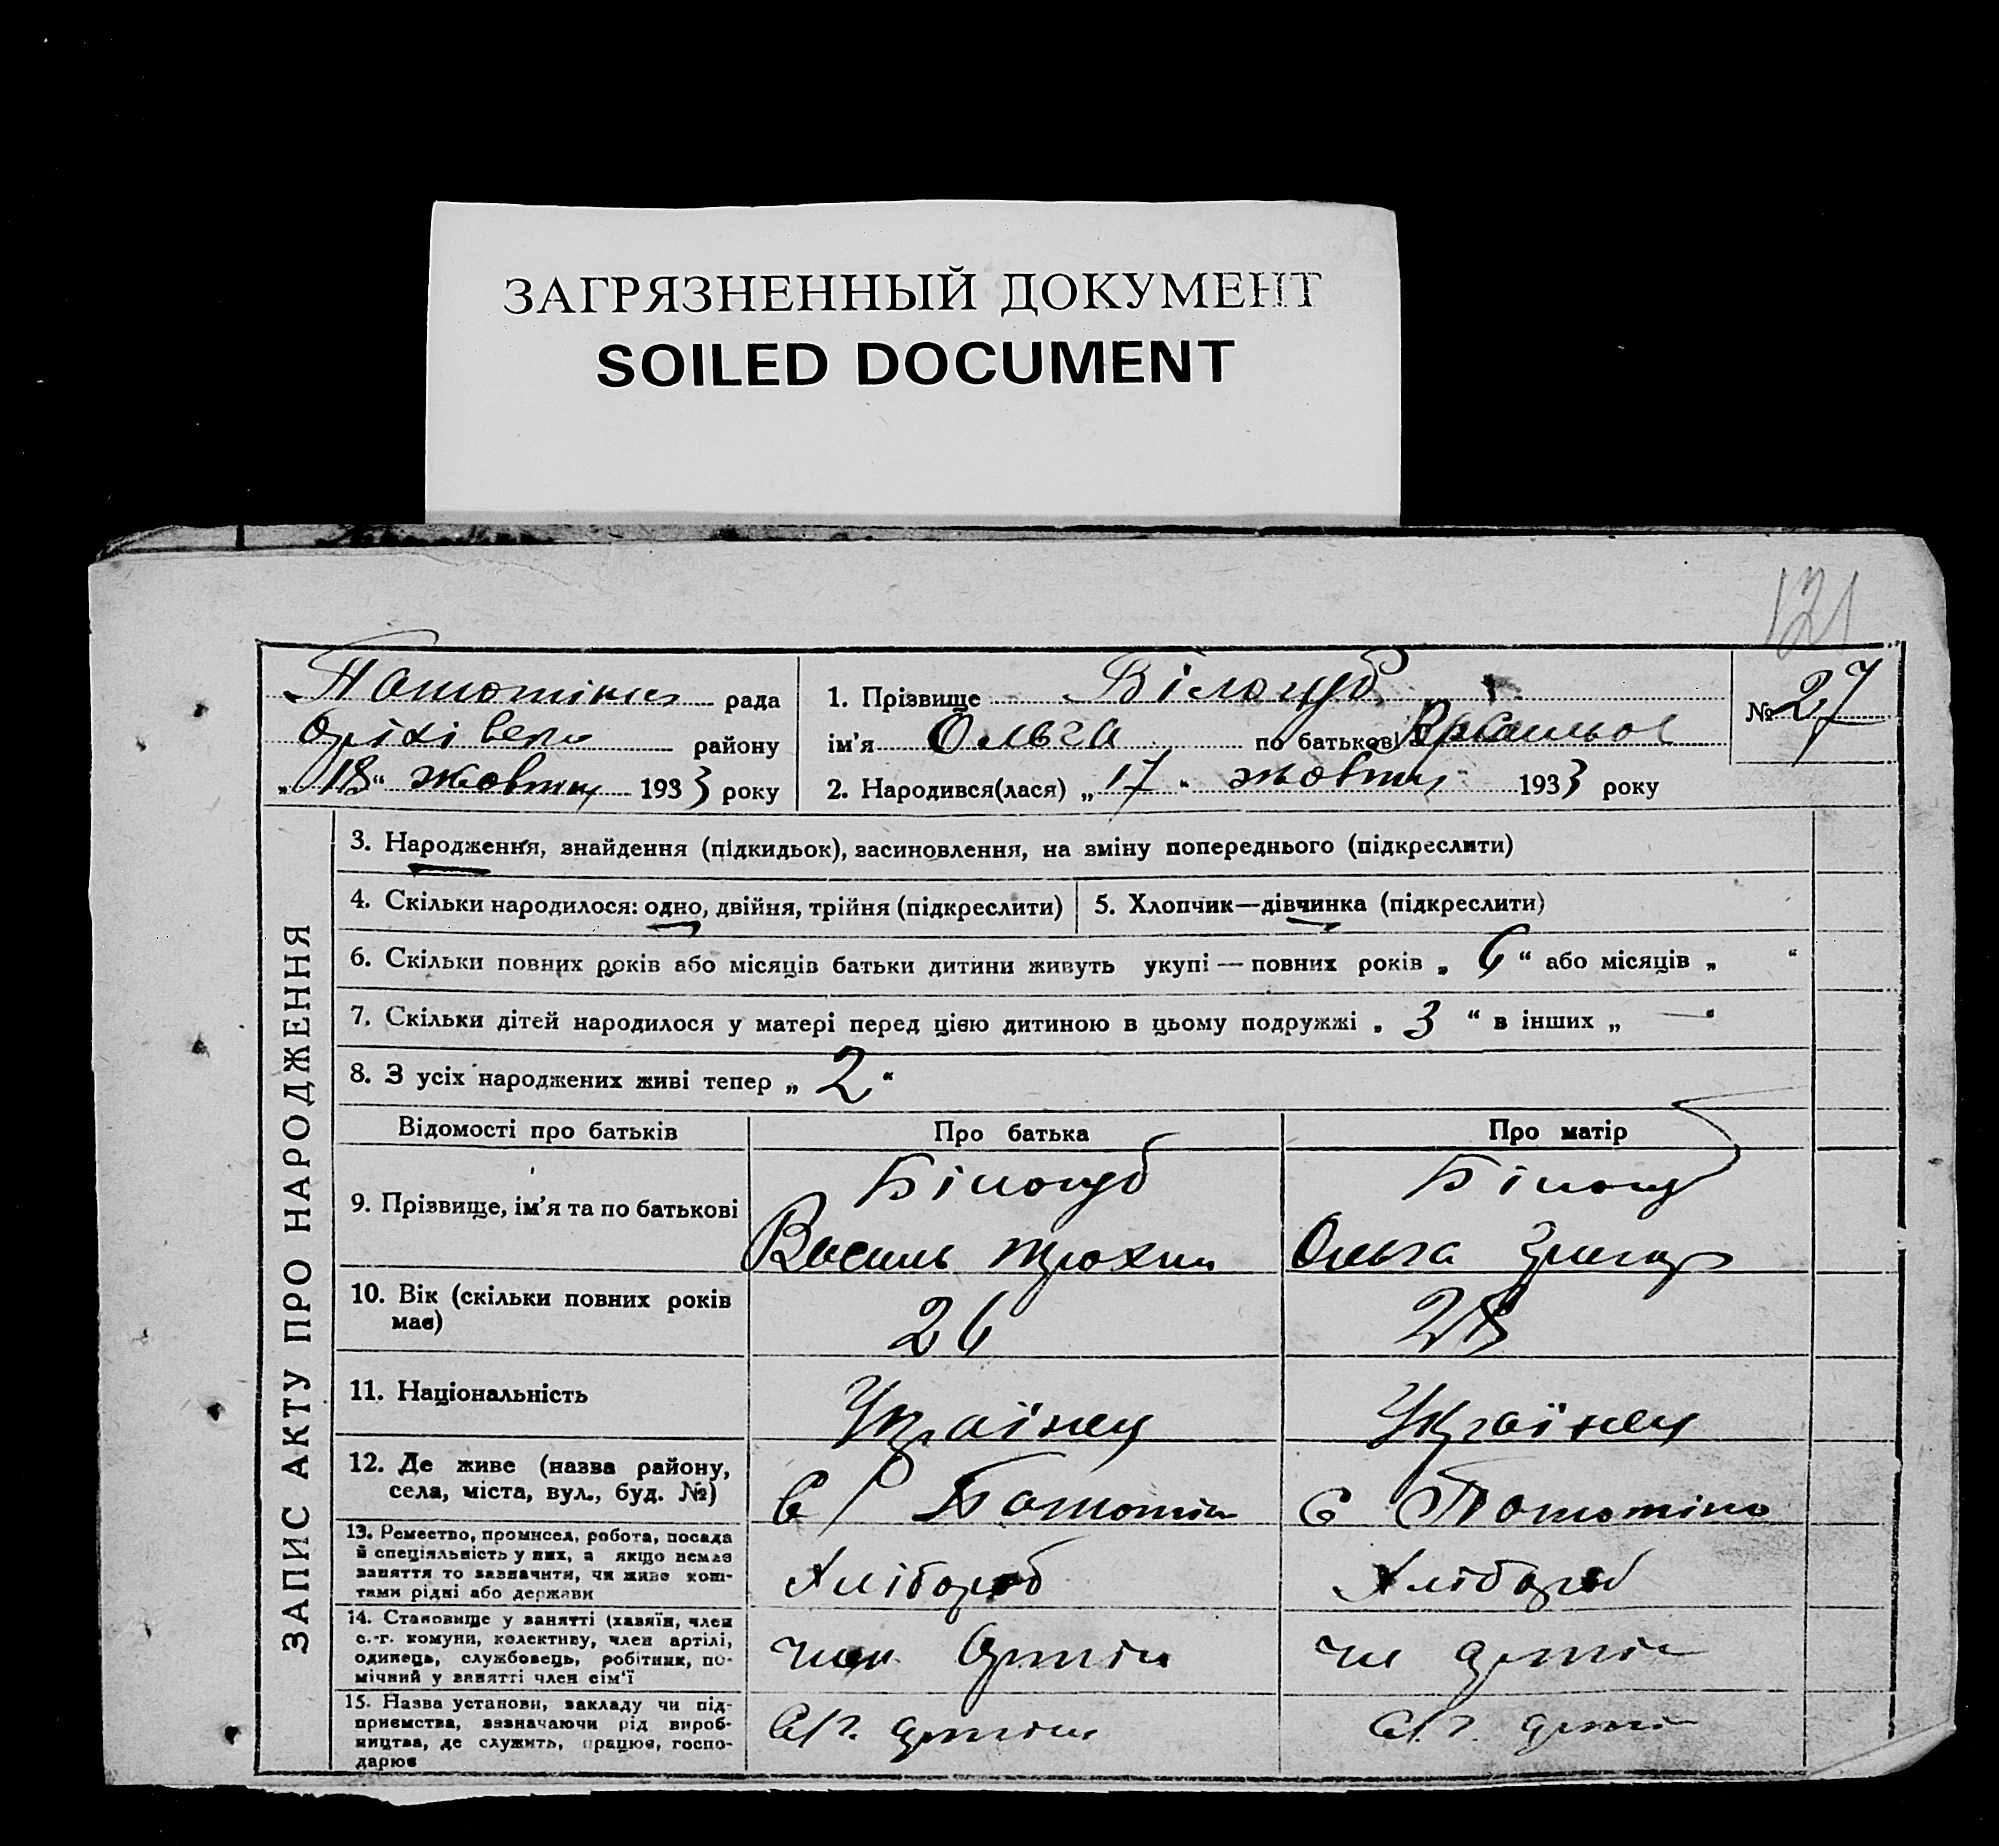 ЗАГРЯЗНЕННЫЙ ДОКУМЕНТ
SOILED DOCUMENT
121
рада
району
„18“ жовтня 1933 року
1. Прізвище Білоцуб
ім'я Ольга по батькові
2. Народився(лася) „17“ жовтня 1933 року
№ 27
ЗАПИС АКТУ ПРО НАРОДЖЕННЯ
3. Народження, знайдення (підкидьок), засиновлення, на зміну попереднього (підкреслити)
4. Скільки народилося: одно, двійня, трійня (підкреслити)
5. Хлопчик—дівчинка (підкреслити)
6. Скільки повних років або місяців батьки дитини живуть укупі — повних років „ 6 “ або місяців „ “
7. Скільки дітей народилося у матері перед цією дитиною в цьому подружжі „ 3 “ в інших „ — “
8. З усіх народжених живі тепер „ 2 “
Відомості про батьків
Про батька
Про матір
9. Прізвище, ім'я та по батькові
Білоцуб
Василь
Білоцуб
Ольга
10. Вік (скільки повних років
має)
26
28
11. Національність
Українец
Українец
12. Де живе (назва району,
села, міста, вул., буд. №)
13. Ремество, промисел, робота, посада
й спеціяльність у них, а якщо немає
заняття то зазначити, чи живе кош-
тами рідні або держави
Хлібороб
Хлібороб
14. Становище у занятті (хазяїн, член
с.-г. комуни, колективу, член артілі,
одинець, службовець, робітник, по-
мічний у занятті член сім'ї
член артіли
чл артіл
15. Назва установи, закладу чи під-
приємства, зазначаючи рід вироб-
ництва, де служить, працює, госпо-
дарює
с/г. артіль
с/г. арті